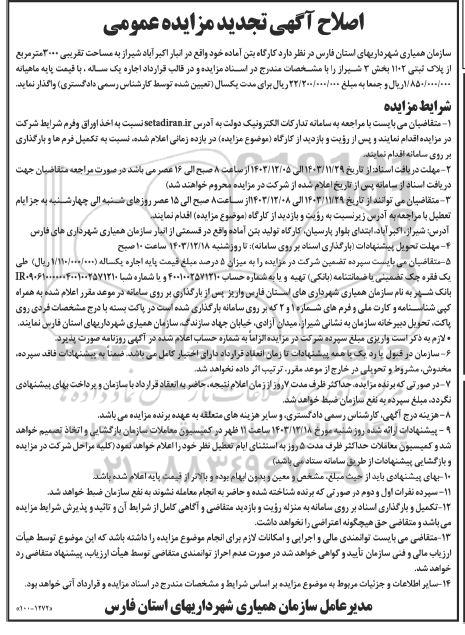 اصلاح آگهی تجدید مزایده عمومی
سازمان همیاری شهرداریهای استان فارس در نظر دارد کارگاه بتن آماده خود واقع در انبار اکبرآباد شیراز به مساحت تقریبی ۳۰۰۰مترمربع
از پلاک ثبتی ۱۱۰۲ بخش ۳ شیراز را با مشخصات مندرج در اسناد مزایده و در قالب قرارداد اجاره یک ساله ، با قیمت پایه ماهیانه
۱/۸۵۰/۰۰۰/۰۰۰ریال و جمعا به مبلغ ۲۲/۲۰۰/۰۰۰/۰۰۰ ریال برای مدت یکسال (تعیین شده توسط کارشناس رسمی دادگستری) واگذار نماید.
شرایط مزایده
۱- متقاضیان می بایست با مراجعه به سامانه تدارکات الکترونیک دولت به آدرس setadiran.ir نسبت به اخذ اوراق و فرم شرایط شرکت
در مزایده اقدام نمایند و پس از رؤیت و بازدید از کارگاه (موضوع مزایده) در بازه زمانی اعلام شده، نسبت به تکمیل فرم ها و بارگذاری
بر روی سامانه اقدام نمایند.
۲- مهلت دریافت اسناد: از تاریخ ۱۴۰۳/۱۱/۲۹ الی ۱۴۰۳/۱۲/۰۵ از ساعت ۸ صبح الی ۱۶ عصر می باشد در صورت مراجعه متقاضیان جهت
دریافت اسناد از سامانه پس از تاریخ اعلام شده از شرکت در مزایده محروم خواهند شد)
۳- متقاضیان می توانند از تاریخ ۱۴۰۳/۱۱/۲۹ الی ۱۴۰۳/۱۲/۰۸ از ساعت ۸ صبح الی ۱۵ عصر روزهای شنبه الی چهارشنبه به جز ایام
تعطیل با مراجعه به آدرس زیرنسبت به رؤیت و بازدید از کارگاه (موضوع مزایده) اقدام نمایند.
آدرس: شیراز، اکبر آباد، ابتدای بلوار پارسیان، کارگاه تولید بتن آماده واقع در قسمتی از انبار سازمان همیاری شهرداری های فارس
۴- مهلت تحویل پیشنهادات (بارگذاری اسناد بر روی سامانه): تا روز شنبه ۱۴۰۳/۱۲/۱۸ ساعت ۱۰ صبح
۵- متقاضیان می بایست سپرده تضمین شرکت در مزایده را به میزان ۵ درصد مبلغ قیمت پایه اجاره یکساله (۱/۱۱۰/۰۰۰/۰۰۰ ریال) طی
یک فقره چک تضمینی یا ضمانتنامه (بانکی) تهیه و یا به شماره حساب ۴۰۰۱۰۰۲۵۷۱۲۱۰ و یا شماره شبا
بانک شهر به نام سازمان همیاری شهرداری های استان فارس واریز پس از بارگذاری بر روی سامانه در موعد مقرر اعلام شده به همراه
کپی شناسنامه و کارت ملی و فرم های شماره ۱ و ۲ که بر روی سامانه بارگذاری شده است در پاکت بسته با درج مشخصات فردی روی
پاکت، تحویل دبیرخانه سازمان به نشانی شیراز، میدان آزادی، خیابان جهاد سازندگی، سازمان همیاری شهرداریهای استان فارس نمایند.
• لازم به ذکر است واریزی مبلغ سپرده شرکت در مزایده الزاما به شماره حساب اعلام شده در آگهی روزنامه صورت پذیرد.
۶- سازمان در قبول یا رد یک یا همه پیشنهادات تا زمان انعقاد قرارداد دارای اختیار کامل می باشد. ضمنا به پیشنهادات فاقد سپرده،
مخدوش، مشروط و تحویلی در خارج از موعد مقرر، ترتیب اثر داده نخواهد شد.
۷- در صورتی که برنده مزایده، حداکثر ظرف مدت ۷ روز از زمان اعلام نتیجه، حاضر به انعقاد قرارداد با سازمان و پرداخت بهای پیشنهادی
نگردد، مبلغ سپرده به نفع سازمان ضبط خواهد شد.
۸- هزینه درج آگهی، کارشناس رسمی دادگستری، و سایر هزینه های متعلقه به عهده برنده مزایده می باشد.
۹- پیشنهادات ارائه شده روز شنبه مورخ ۱۴۰۳/۱۲/۱۸ ساعت ۱۱ ظهر در کمیسیون معاملات سازمان بازگشایی و اتخاذ تصمیم خواهد
شد و کمیسیون معاملات حداکثر ظرف مدت ۵ روز به استثنای ایام تعطیل نظر خود را اعلام خواهد نمود (کلیه مراحل شرکت در مزایده
و بازگشایی پیشنهادات از طریق سامانه ستاد می باشد)
۱۰- بهای پیشنهادی باید از حیث مبلغ، مشخص و معین و بدون ابهام بوده و بالاتر از قیمت پایه اعلام شده باشد.
۱۱- سپرده نفرات اول و دوم در صورتی که برنده شناخته شده و حاضر به انجام معامله نشوند به نفع سازمان ضبط خواهد شد.
۱۲- تکمیل و بارگذاری اسناد بر روی سامانه به منزله رؤیت و بازدید متقاضی و آگاهی کامل از شرایط آن و تائید و پذیرش شرایط مزایده
می باشد و متقاضی حق هیچگونه اعتراضی را نخواهد داشت.
۱۳- متقاضی می بایست توانمندی مالی و اجرایی و امکانات لازم برای انجام موضوع مزایده را داشته باشد که این موضوع توسط هیأت
ارزیاب مالی و فنی سازمان تأیید و گواهی خواهد شد در صورت عدم احراز توانمندی متقاضی توسط هیأت ارزیاب، پیشنهاد متقاضی رد
خواهد شد.
۱۴- سایر اطلاعات و جزئیات مربوط به موضوع مزایده بر اساس شرایط و مشخصات مندرج در اسناد مزایده و قرارداد آتی خواهد بود.
مدیرعامل سازمان همیاری شهرداریهای استان فارس
«۱۰۰-۱۲۷۲»